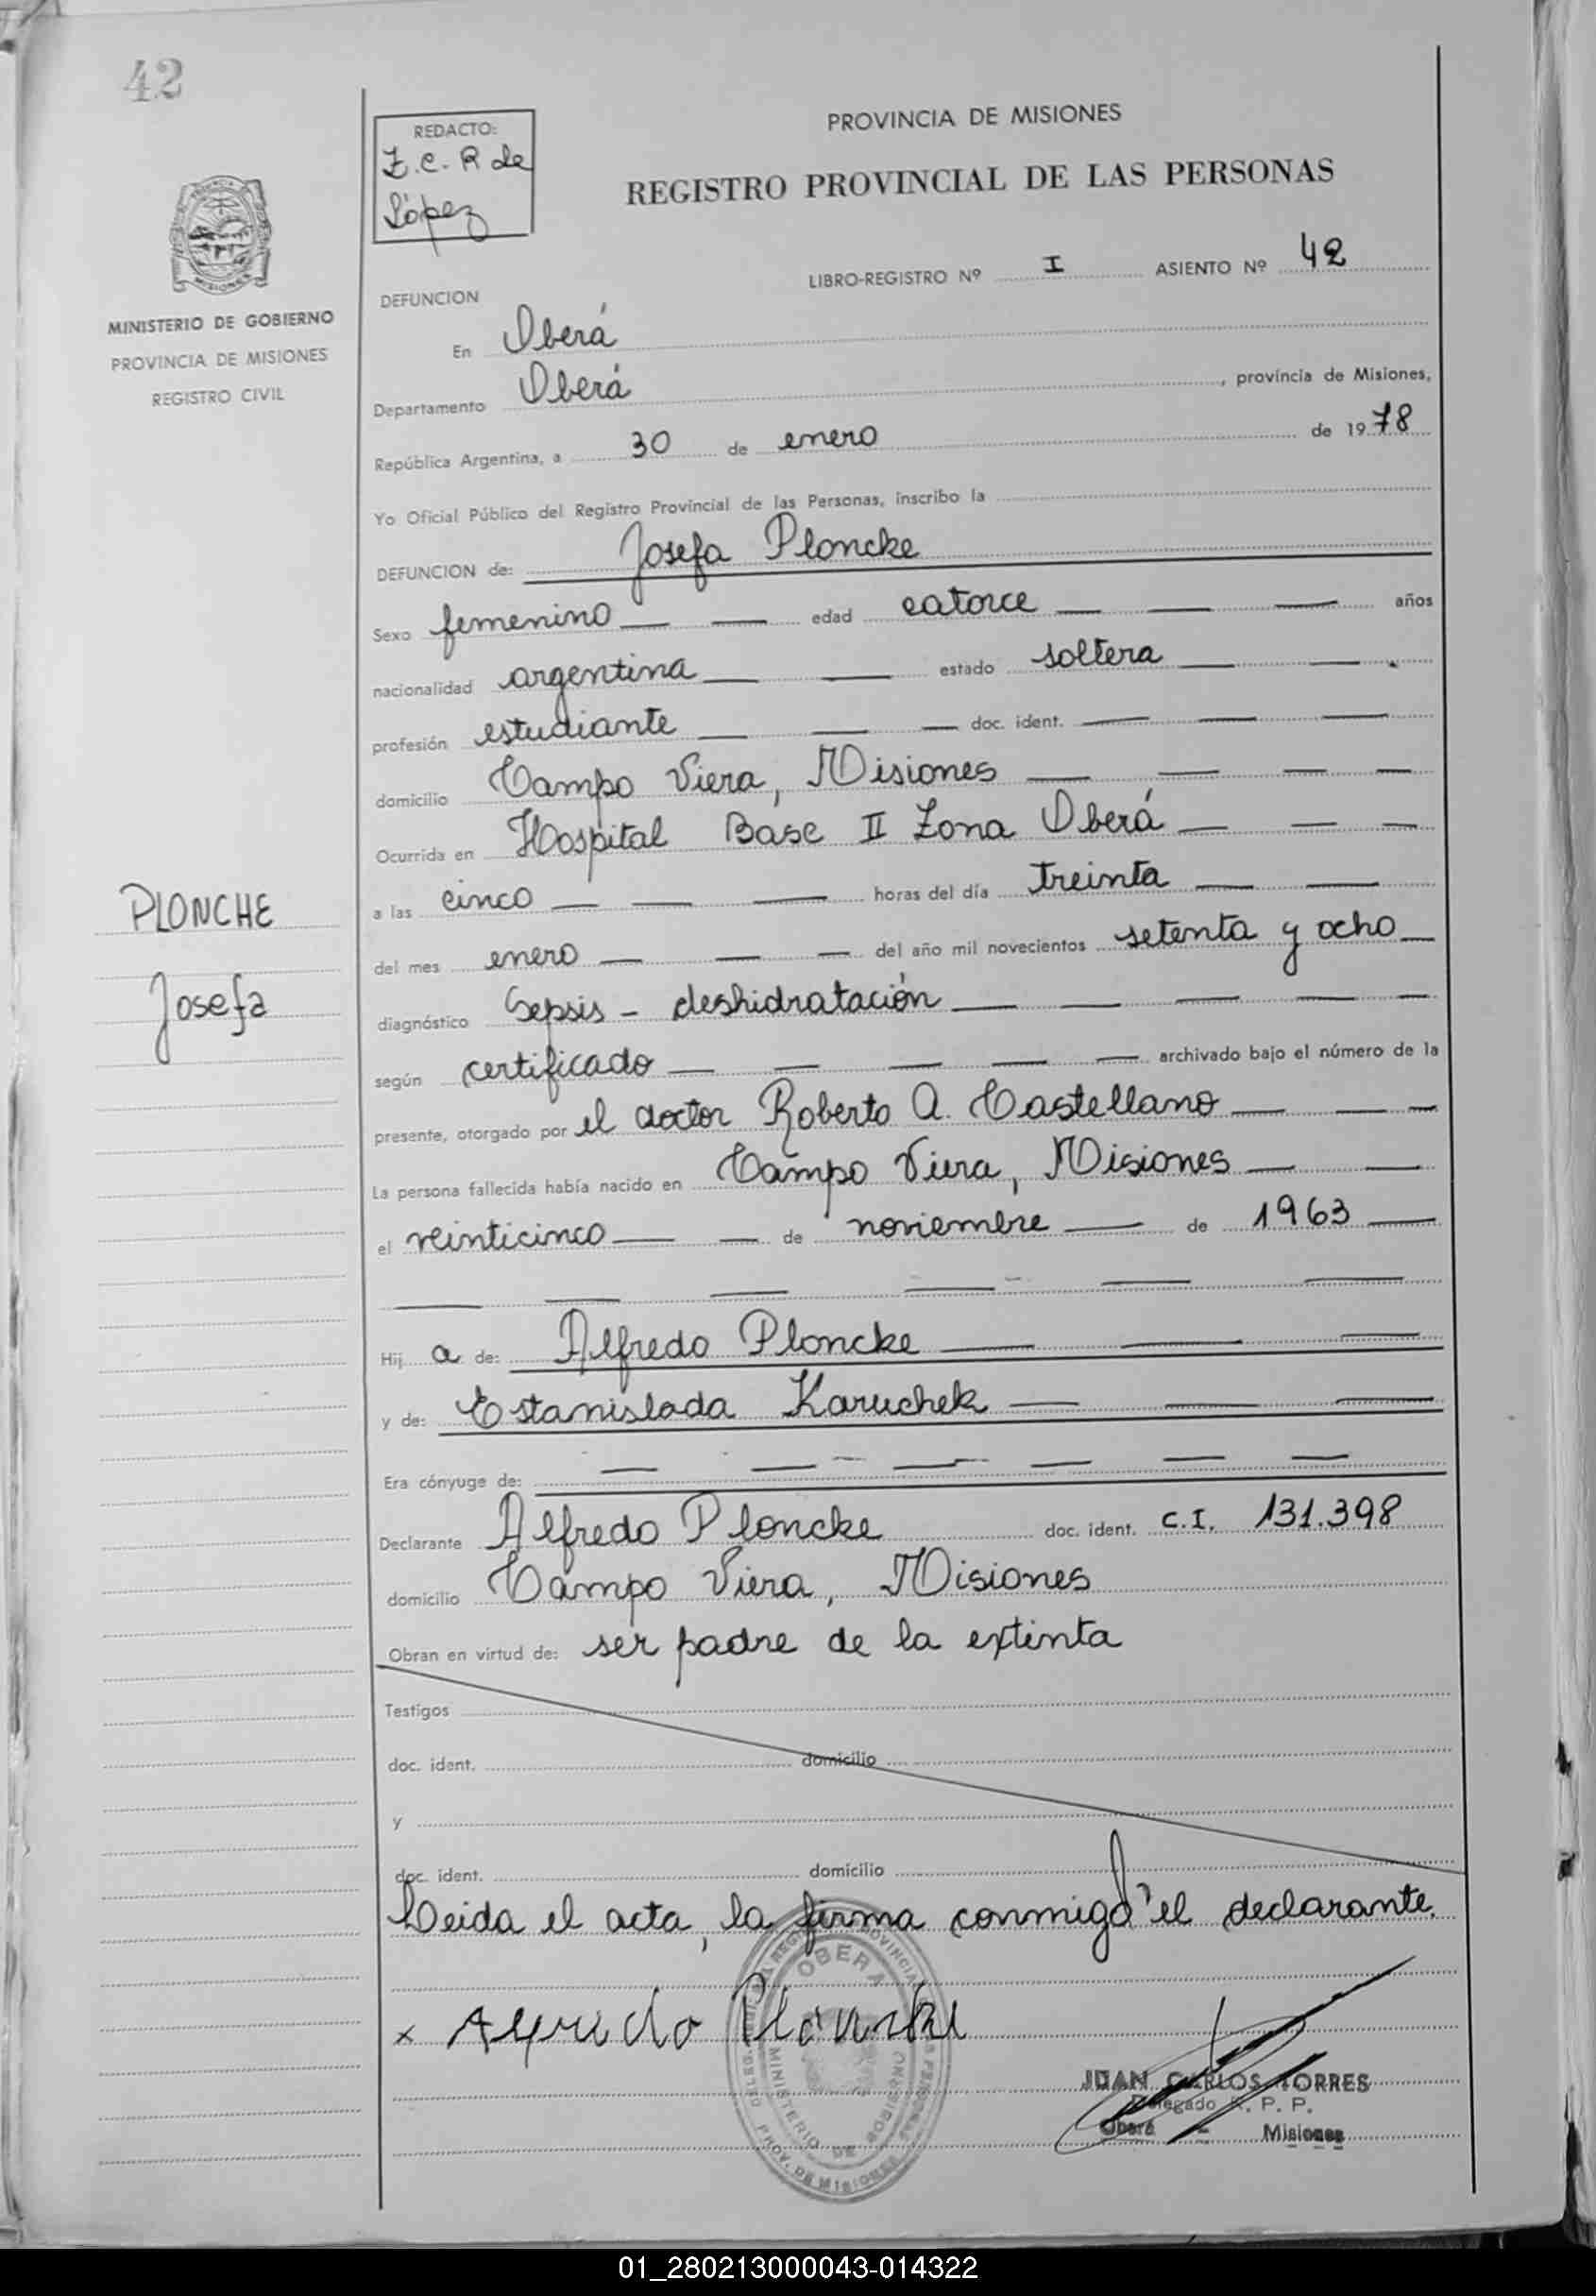 42
REDACTO:
Z.C.R de
López
PROVINCIA DE MISIONES
REGISTRO PROVINCIAL DE LAS PERSONAS
MINISTERIO DE GOBIERNO
PROVINCIA DE MISIONES
REGISTRO CIVIL
LIBRO-REGISTRO Nº I ASIENTO Nº 42
DEFUNCION
En Oberá
Departamento Oberá, provincia de Misiones,
República Argentina, a 30 de enero de 1978
Yo Oficial Público del Registro Provincial de las Personas, inscribo la
DEFUNCION de: Josefa Ploncke
Sexo femenino edad catorce años
nacionalidad argentina estado soltera
profesión estudiante doc. ident.
domicilio Campo Viera, Misiones
Ocurrida en Hospital Base II Zona Oberá
PLONCHE
Josefa
a las cinco horas del día treinta
del mes enero del año mil novecientos setenta y ocho
diagnóstico Sepsis - deshidratación
según certificado archivado bajo el número de la
presente, otorgado por el doctor Roberto A. Castellano
La persona fallecida había nacido en Campo Viera, Misiones
el veinticinco de noviembre de 1963
Hij a de: Alfredo Ploncke
y de: Estanislada Karuchek
Era cónyuge de:
Declarante Alfredo Ploncke doc. ident. C.I. 131.398
domicilio Campo Viera, Misiones
Obran en virtud de: ser padre de la extinta
Testigos
doc. ident. domicilio
y
doc. ident. domicilio
Leida el acta, la firma conmigo el declarante.
x
OBERA
MINISTERIO DE GOBIERNO
PROV. DE MISIONES
JUAN CARLOS TORRES
Delegado R. P. P.
Oberá - Misiones
01_280213000043-014322